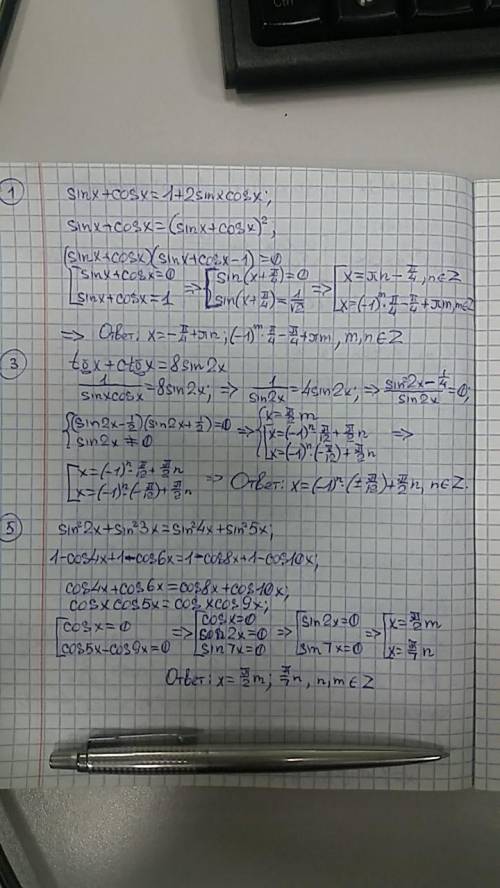 1 sinx+cosx=1+2sinxcosx;
sinx+cosx=(sinx+cosx)²,
(sinx+cosx)(sinx+cosx-1)=0
[sinx+cosx=0 => [sin(x+π/4)=0 => [x=πn-π/4, n∈Z
sinx+cosx=1 sin(x+π/4)=1/√2 x=(-1)^m·π/4-π/4+πm, m∈Z
=> Ответ: x=-π/4+πn; (-1)^m·π/4-π/4+πm, m,n∈Z
3 tgx+ctgx=8sin2x
1/sinxcosx=8sin2x; => 1/sin2x=4sin2x; => sin²2x-1/4/sin2x=0;
{(sin2x-1/2)(sin2x+1/2)=0 => {x≠π/2m
sin2x≠0 [x=(-1)^n·π/12+π/2n =>
x=(-1)^n·(-π/12)+π/2n
[x=(-1)^n·π/12+π/2n
x=(-1)^n·(-π/12)+π/2n => Ответ: x=(-1)^n·(±π/12)+π/2n, n∈Z.
5 sin²2x+sin²3x=sin²4x+sin²5x;
1-cos4x+1-cos6x=1-cos8x+1-cos10x;
cos4x+cos6x=cos8x+cos10x;
cosxcos5x=cosxcos9x;
[cosx=0 => [cosx=0 => [sin2x=0 => [x=π/2m
cos5x-cos9x=0 sin2x=0 sin7x=0 x=π/7n
sin7x=0
Ответ: x=π/2m; π/7n, n,m∈Z